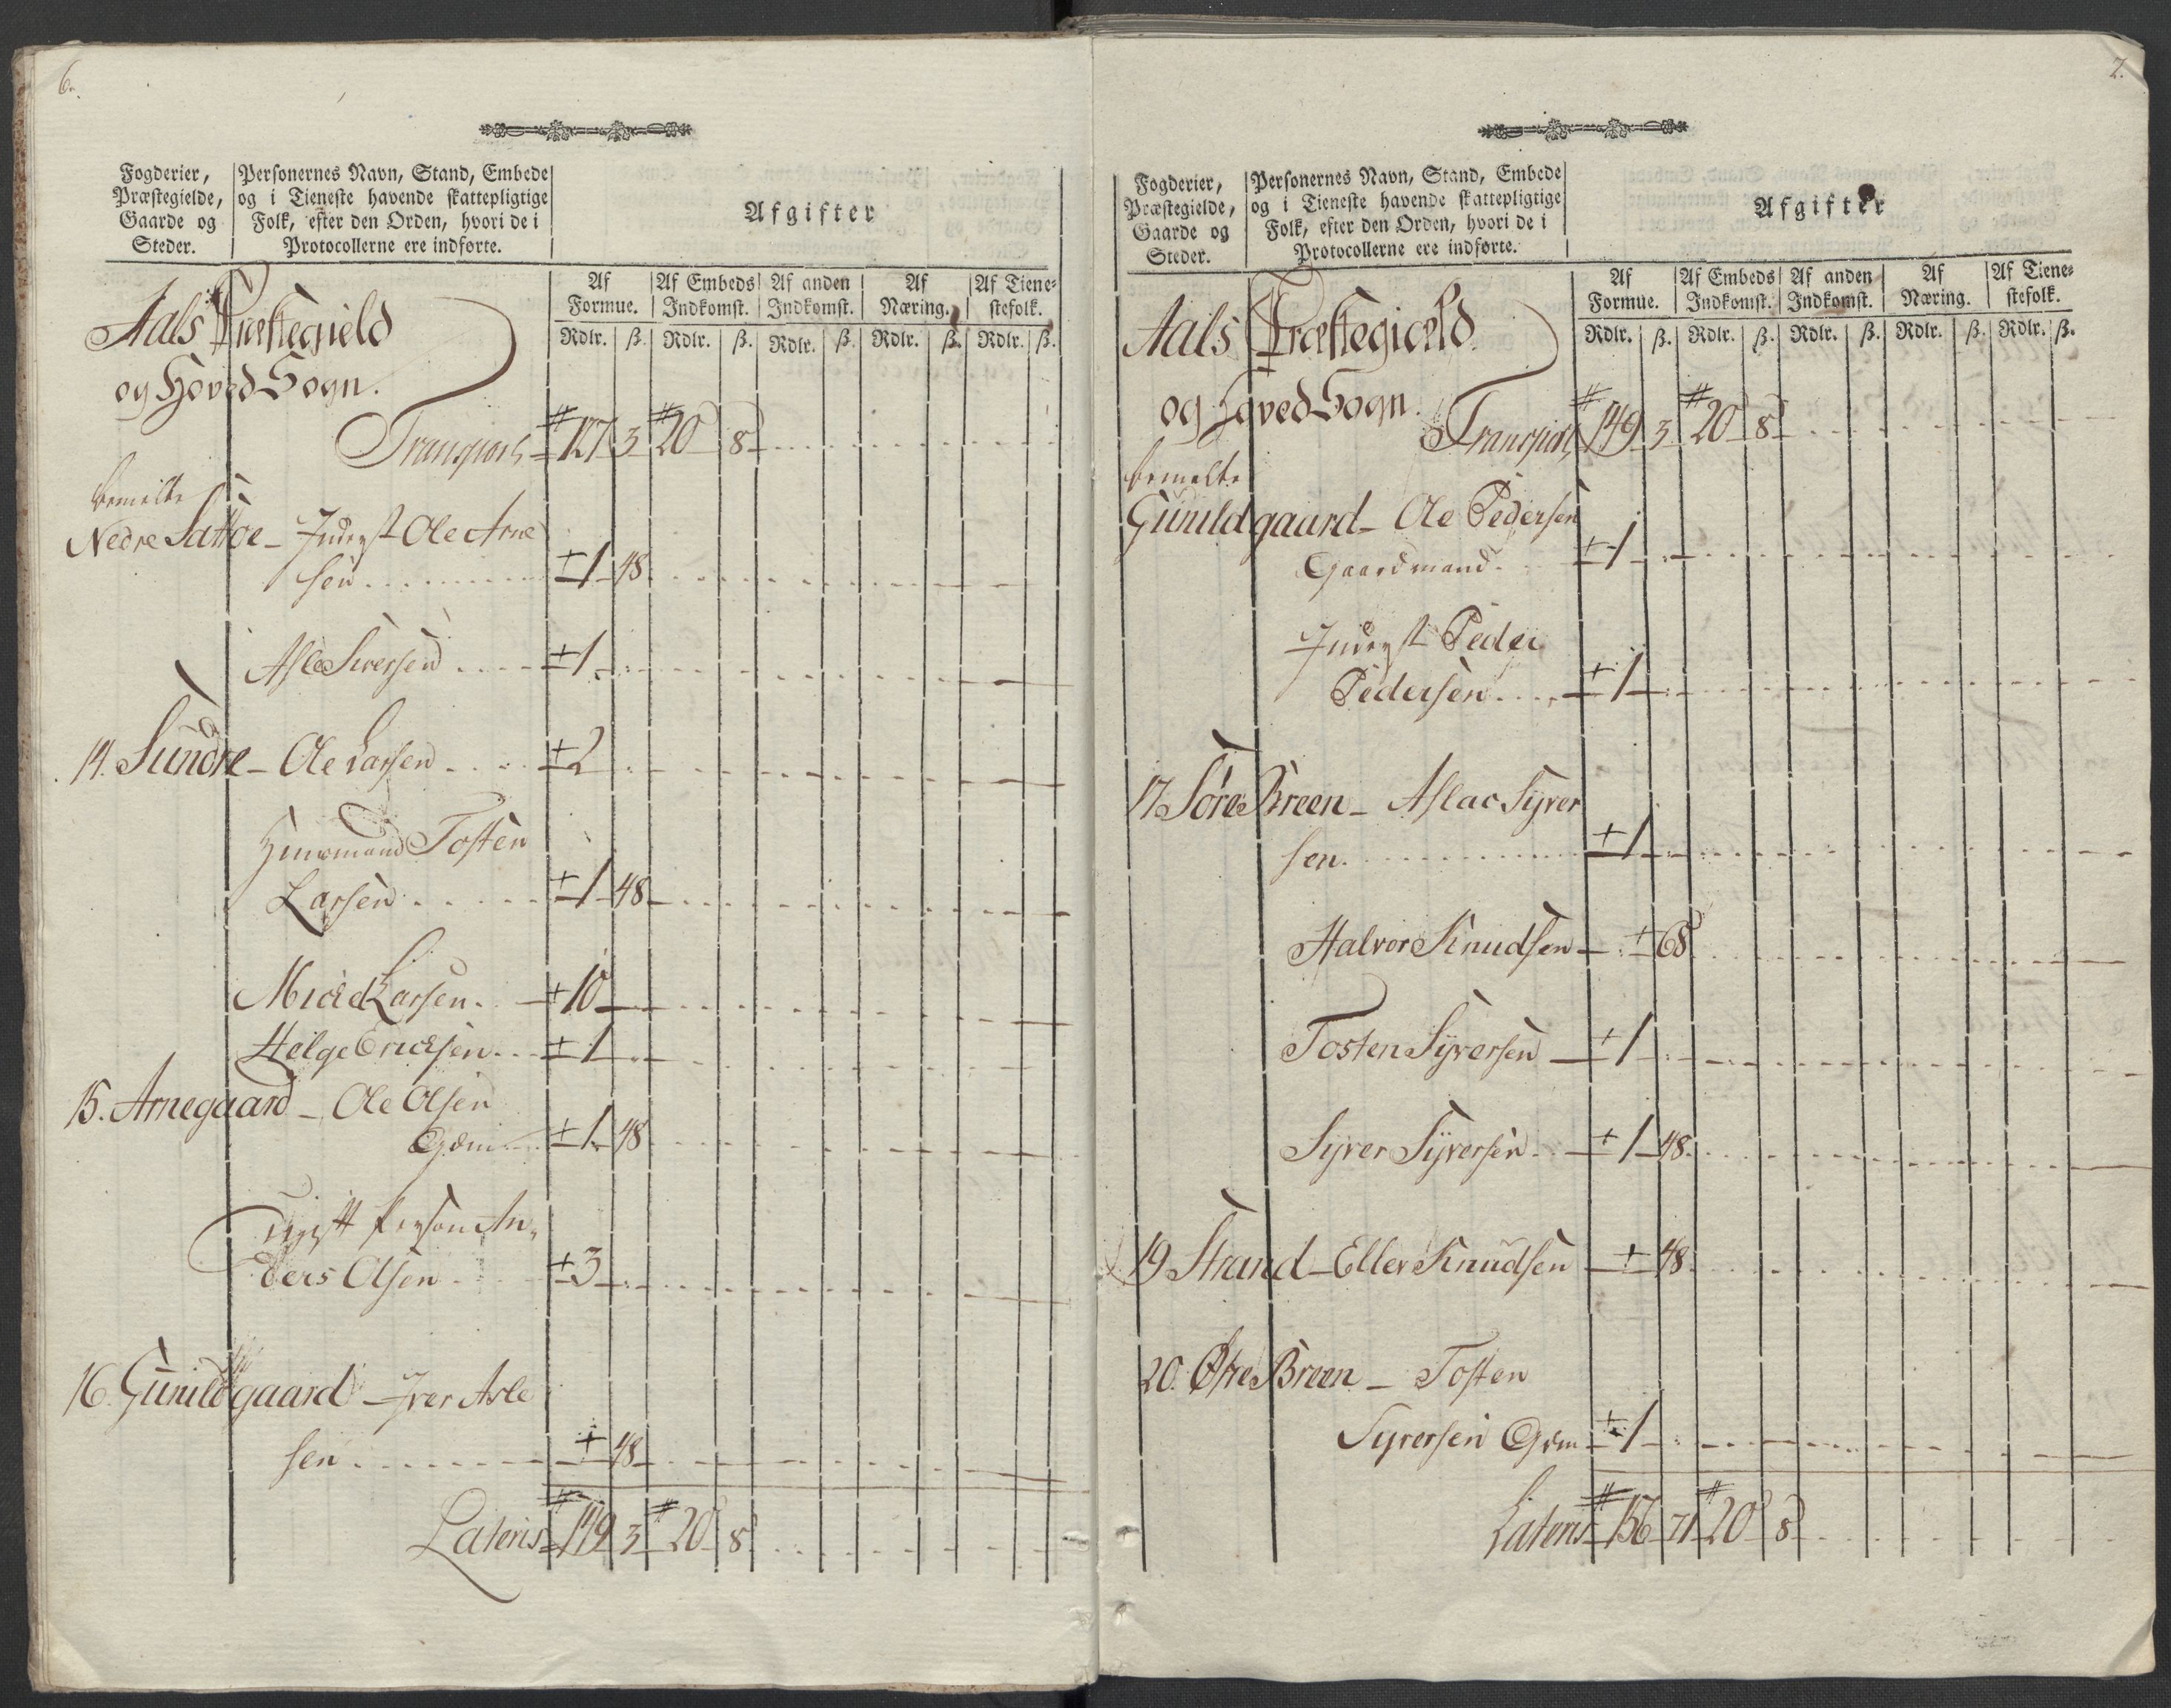 6.
Fogderier, Præstegielde, Gaarde og Steder.
Personernes Navn, Stand, Embede og i Tieneste havende skattepligtige Folk, efter den Orden, hvori de i Protocollerne ere indførte.
Afgifter
Af Formue. Af Embeds Indkomst. Af anden Indkomst. Af Næring. Af Tienestefolk.
Rdlr. ß. Rdlr. ß. Rdlr. ß. Rdlr. ß. Rdlr. ß.
Aals Præstegield
og Hoved Sogn.
Transport 127 3 20 8
bemelte
Nedre Sattoe - Inderst Ole Arne
sen 1 48
Asle Siversen 1
14. Sundre - Ole Larsen 2
Huusmand Tosten
Larsen 1 48
Mickel Larsen 10
Helge Ericksen 1
15. Arnegaard - Ole Olsen
Gdm 1 48
ugift Person An
ders Olsen 3
16. Gunildgaard - Iver Asle
sen 48
Lateris 149 3 20 8
7.
Fogderier, Præstegielde, Gaarde og Steder.
Personernes Navn, Stand, Embede og i Tieneste havende skattepligtige Folk, efter den Orden, hvori de i Protocollerne ere indførte.
Afgifter
Af Formue. Af Embeds Indkomst. Af anden Indkomst. Af Næring. Af Tienestefolk.
Rdlr. ß. Rdlr. ß. Rdlr. ß. Rdlr. ß. Rdlr. ß.
Aals Præstegield
og Hoved Sogn.
Transport 149 3 20 8
bemelte
Gunildgaard - Ole Pedersen
Gaardmand 1
Inderst Peder
Pedersen 1
17 Søre Breen - Aslac Syver
sen 1
Halvor Knudsen 68
Tosten Syversen 1
Syver Syversen 1 48
19 Strand - Ellev Knudsen 48
20. Østre Breen - Tosten
Syversen Gdm 1
Lateris 156 71 20 8